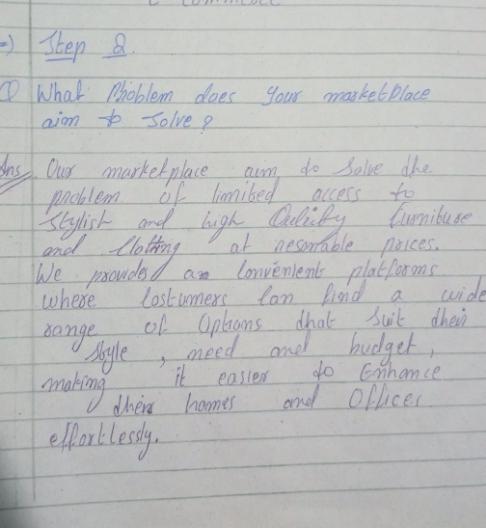 => Step 2.
Q What Problem does your marketplace
aim to Solve?
Ans Our marketplace aim to Solve the
problem of limited access to
Stylish and high Quality furniture
and Clothing at resonable prices.
We provides a convenient platforms
where Costumers Can find a wide
range of Options that Suit their
Style, need and budget,
making it easier to Enhance
their homes and Offices
effortlessly.